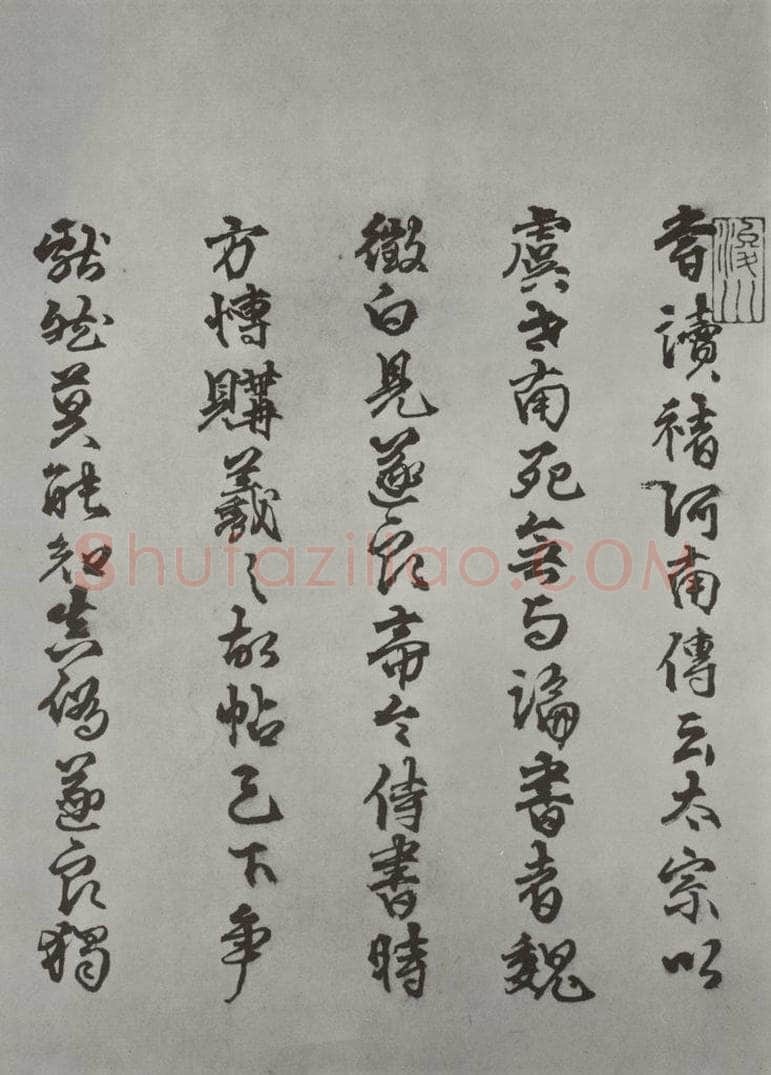 嘗讀褚河南傳云太宗以
虞世南死無与論書者魏
徵白見遂良帝令侍書時
方愽購羲之故帖天下爭
獻然莫能知真偽遂良獨
Shufaziliao.COM